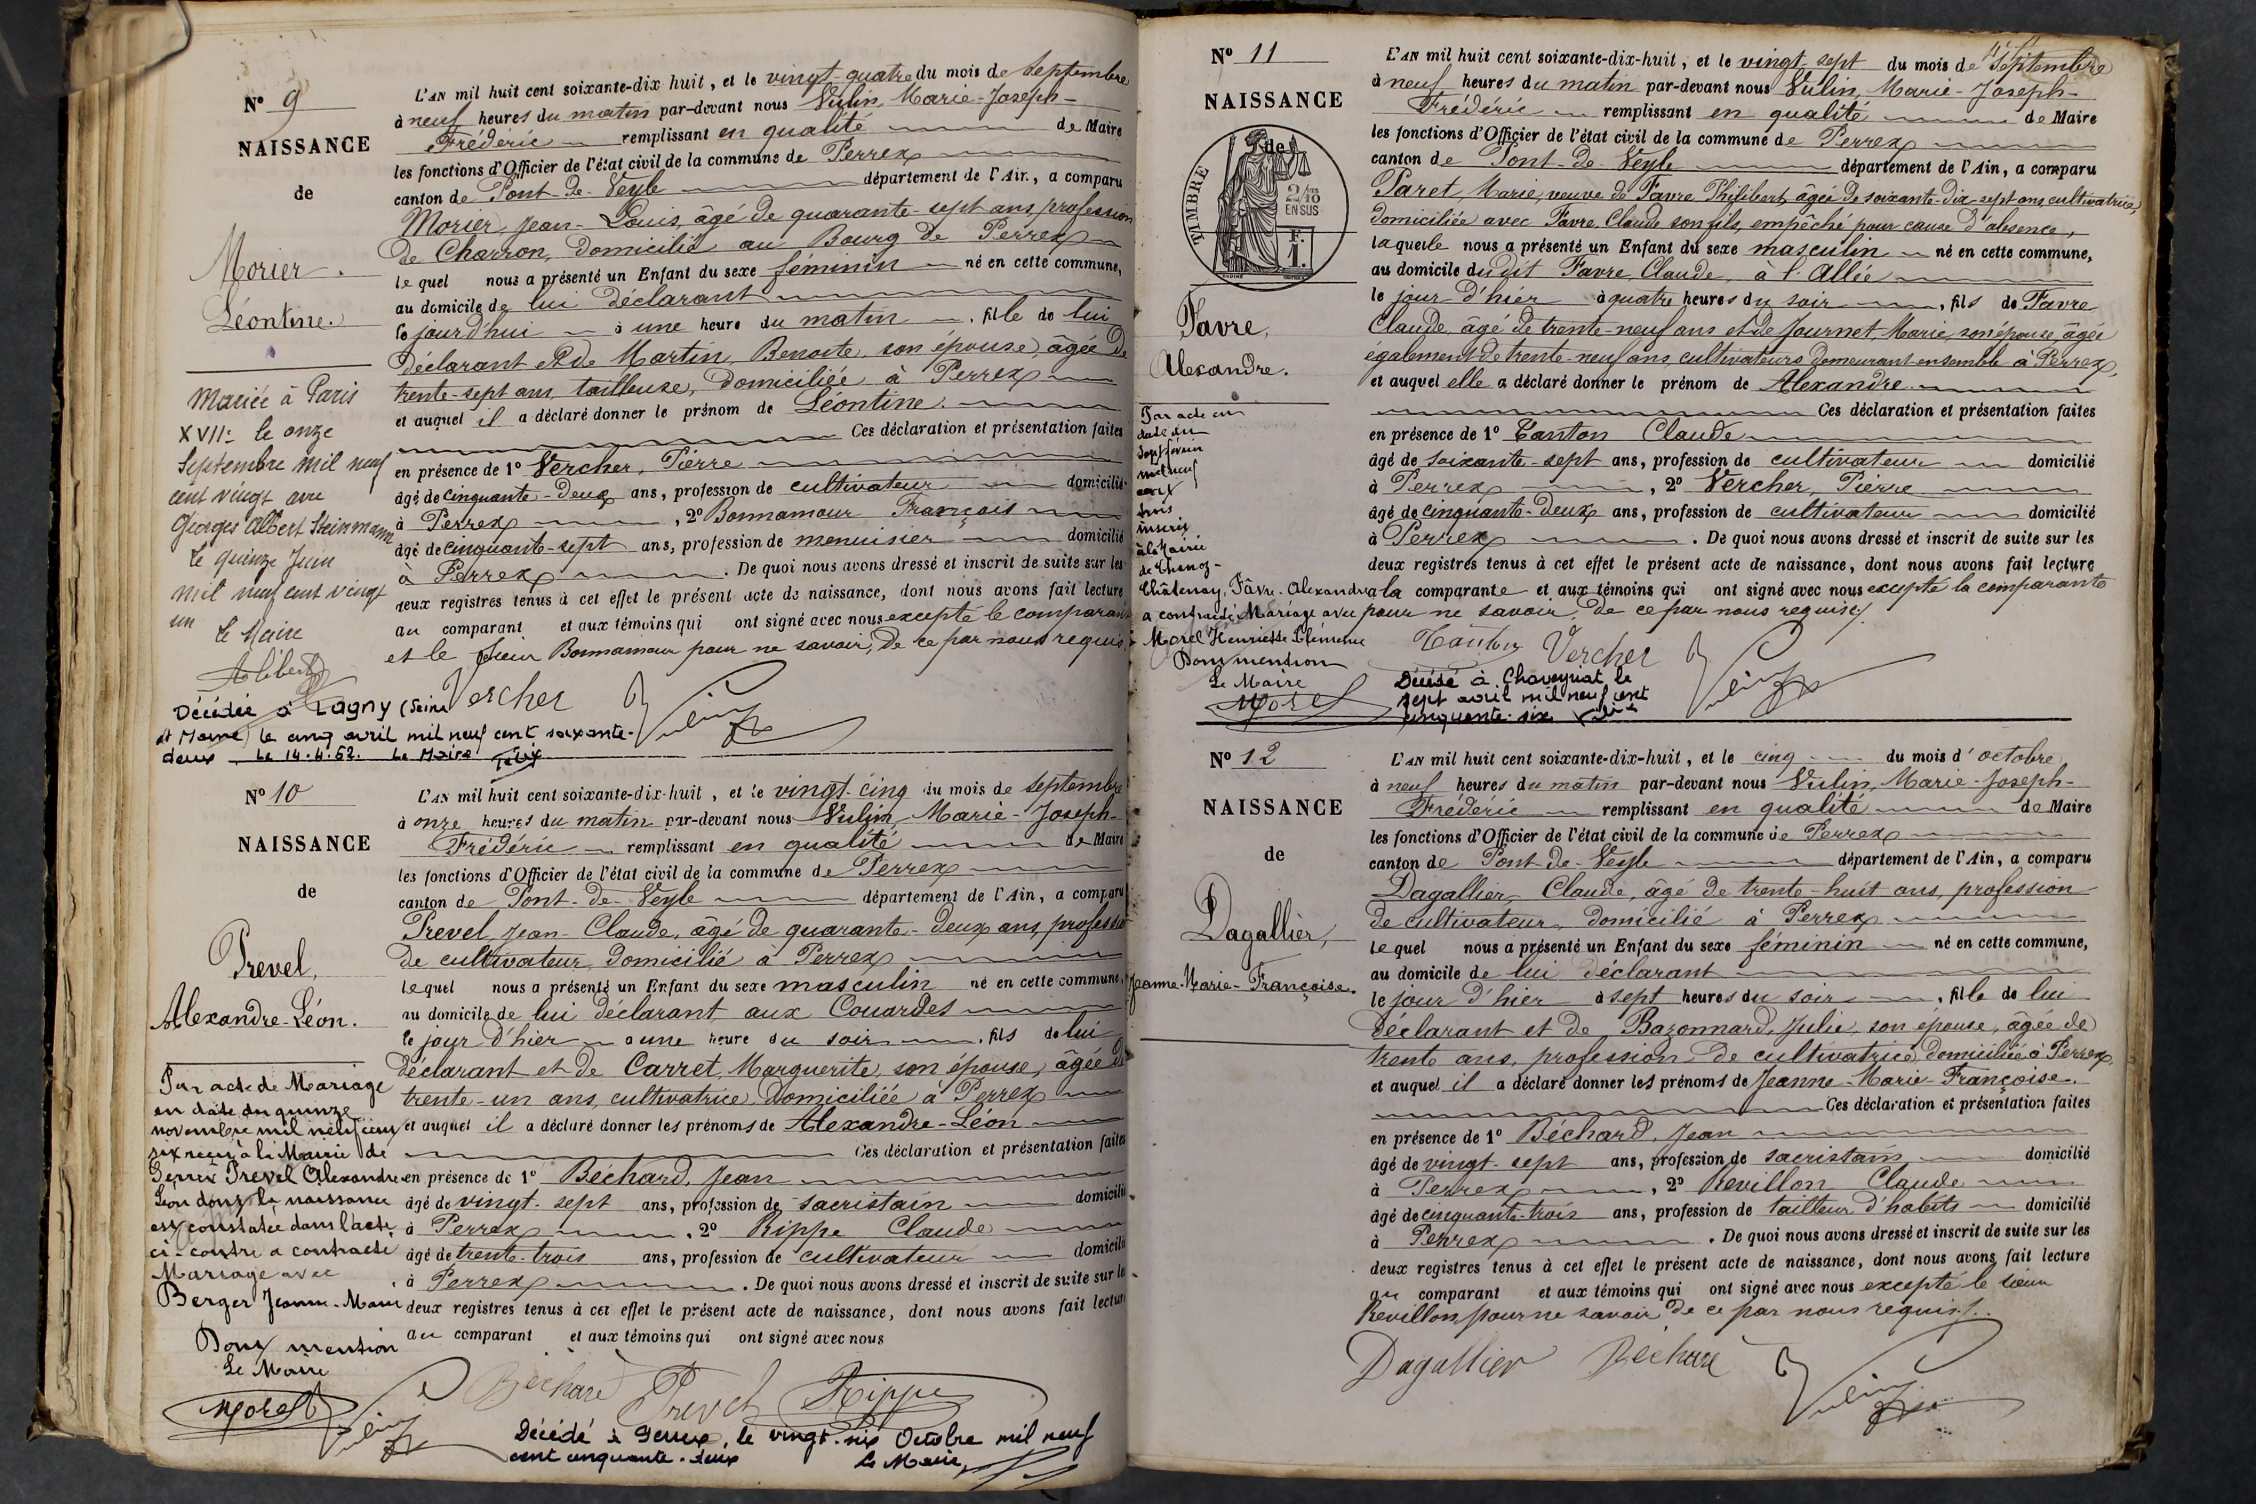 Nº 9
NAISSANCE
de
Morier
Léontine.
Mariée à Paris
XVIIe le onze
Septembre mil neuf
cent vingt avec
Georges Albert Steinmann
le quinze Juin
mil neuf cent vingt
un
Le Maire
Décédée à Lagny (Seine
et Marne) le cinq avril mil neuf cent soixante-
deux Le 14.4.62. Le Maire
L'AN mil huit cent soixante-dix huit, et le vingt-quatre du mois de Septembre
à neuf heures du matin par-devant nous Vulin, Marie-Joseph-
Frédéric remplissant en qualité de Maire
les fonctions d'Officier de l'état civil de la commune de Perrex
canton de Pont-de-Veyle département de l'Ain, a comparu
Morier, Jean-Louis, âgé de quarante-sept ans, profession
de Charron, domicilié au Bourg de Perrex
lequel nous a présenté un Enfant du sexe féminin né en cette commune,
au domicile de lui déclarant
le jourd'hui à une heure du matin, fille de lui
déclarant et de Martin, Benoite, son épouse, âgée de
trente-sept ans, tailleuse, domiciliée à Perrex
et auquel il a déclaré donner le prénom de Léontine.
Ces déclaration et présentation faites
en présence de 1º Vercher, Pierre
âgé de cinquante-deux ans, profession de cultivateur domicilié
à Perrex, 2º Bonnamour François
âgé de cinquante-sept ans, profession de menuisier domicilié
à Perrex. De quoi nous avons dressé et inscrit de suite sur les
deux registres tenus à cet effet le présent acte de naissance, dont nous avons fait lecture
au comparant et aux témoins qui ont signé avec nous excepté le comparant
et le sieur Bonnamour pour ne savoir, de ce par nous requis.
Vercher Vulin
Nº 10
NAISSANCE
de
Prevel,
Alexandre-Léon.
Par acte de Mariage
en date du quinze
novembre mil neuf cent
six reçu à la Mairie de
Prevel Alexandre
Léon dont la naissance
est constatée dans l'acte
ci-contre a contracté
Mariage avec
Berger Jeanne-Marie
Dont mention
Le Maire
Morel
L'AN mil huit cent soixante-dix-huit, et le vingt-cinq du mois de septembre
à onze heures du matin par-devant nous Vulin, Marie-Joseph-
Frédéric remplissant en qualité de Maire
les fonctions d'Officier de l'état civil de la commune de Perrex
canton de Pont-de-Veyle département de l'Ain, a comparu
Prevel, Jean-Claude, âgé de quarante-deux ans, profession
de cultivateur, domicilié à Perrex
lequel nous a présenté un Enfant du sexe masculin né en cette commune,
au domicile de lui déclarant aux Couardes
le jour d'hier à une heure du soir, fils de lui
déclarant et de Carret, Marguerite, son épouse, âgée de
trente-un ans, cultivatrice, domiciliée à Perrex
et auquel il a déclaré donner les prénoms de Alexandre-Léon
Ces déclaration et présentation faites
en présence de 1º Béchard, Jean
âgé de vingt-sept ans, profession de sacristain domicilié
à Perrex, 2º Rippe Claude
âgé de trente-trois ans, profession de cultivateur domicilié
à Perrex. De quoi nous avons dressé et inscrit de suite sur les
deux registres tenus à cet effet le présent acte de naissance, dont nous avons fait lecture
au comparant et aux témoins qui ont signé avec nous
Vulin Béchard Prevel Rippe
Décédé à, le vingt-six Octobre mil neuf
cent cinquante-deux Le Maire,
Nº 11
NAISSANCE
de
TIMBRE
2/10
EN SUS
F.
1.
Favre,
Alexandre.
Par acte en
date du
mil neuf
cent
trois
inscrit
à la Mairie
de
Châtenay, Favre Alexandre
a contracté Mariage avec
Morel Henriette Clémence
Dont mention
Le Maire
Morel
L'AN mil huit cent soixante-dix-huit, et le vingt-sept du mois de Septembre
à neuf heures du matin par-devant nous Vulin, Marie-Joseph-
Frédéric remplissant en qualité de Maire
les fonctions d'Officier de l'état civil de la commune de Perrex
canton de Pont-de-Veyle département de l'Ain, a comparu
Paret, Marie, veuve de Favre Philibert, âgée de soixante-dix-sept ans, cultivatrice,
domiciliée avec Favre, Claude son fils, empêché pour cause d'absence,
laquelle nous a présenté un Enfant du sexe masculin né en cette commune,
au domicile du dit Favre, Claude, à l'Allée
le jour d'hier à quatre heures du soir, fils de Favre
Claude, âgé de trente-neuf ans et de Journet, Marie, son épouse, âgée
également de trente-neuf ans, cultivateurs, demeurant ensemble à Perrex,
et auquel elle a déclaré donner le prénom de Alexandre
Ces déclaration et présentation faites
en présence de 1º Tanton Claude
âgé de soixante-sept ans, profession de cultivateur domicilié
à Perrex, 2º Vercher, Pierre
âgé de cinquante-deux ans, profession de cultivateur domicilié
à Perrex. De quoi nous avons dressé et inscrit de suite sur les
deux registres tenus à cet effet le présent acte de naissance, dont nous avons fait lecture
à la comparante et aux témoins qui ont signé avec nous excepté la comparante
pour ne savoir, de ce par nous requise.
Tanton Vercher Vulin
Décédé à Chaveyriat le
sept avril mil neuf cent
cinquante-six
Nº 12
NAISSANCE
de
Dagallier,
Jeanne-Marie-Françoise.
L'AN mil huit cent soixante-dix-huit, et le cinq du mois d'octobre
à neuf heures du matin par-devant nous Vulin, Marie-Joseph-
Frédéric remplissant en qualité de Maire
les fonctions d'Officier de l'état civil de la commune de Perrex
canton de Pont-de-Veyle département de l'Ain, a comparu
Dagallier, Claude, âgé de trente-huit ans, profession
de cultivateur, domicilié à Perrex
lequel nous a présenté un Enfant du sexe féminin né en cette commune,
au domicile de lui déclarant
le jour d'hier à sept heures du soir, fille de lui
déclarant et de Bazonnard, Julie, son épouse, âgée de
trente ans, profession de cultivatrice, domiciliée à Perrex
et auquel il a déclaré donner les prénoms de Jeanne-Marie-Françoise.
Ces déclaration et présentation faites
en présence de 1º Béchard, Jean
âgé de vingt-sept ans, profession de sacristain domicilié
à Perrex, 2º Revillon Claude
âgé de cinquante-trois ans, profession de tailleur d'habits domicilié
à Perrex. De quoi nous avons dressé et inscrit de suite sur les
deux registres tenus à cet effet le présent acte de naissance, dont nous avons fait lecture
au comparant et aux témoins qui ont signé avec nous excepté le sieur
Revillon pour ne savoir de ce par nous requis.
Dagallier Béchard Vulin